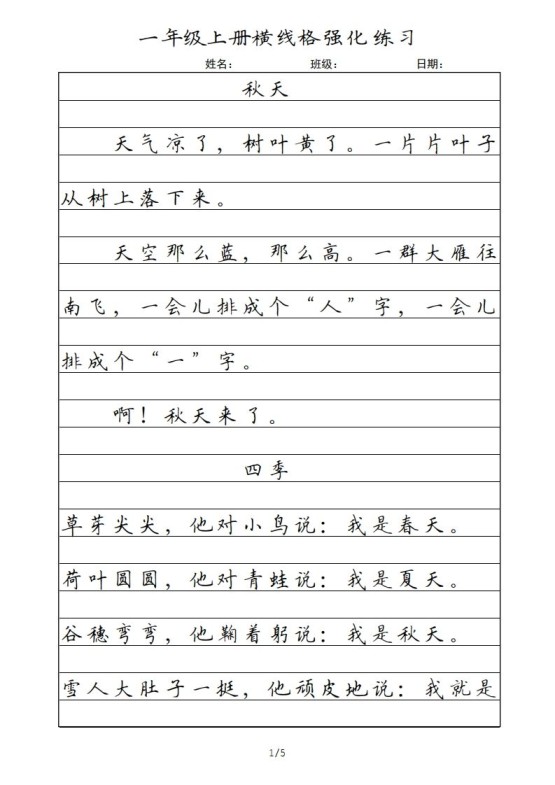 一年级上册横线格强化练习
姓名： 班级： 日期：
秋天
天气凉了，树叶黄了。一片片叶子
从树上落下来。
天空那么蓝，那么高。一群大雁往
南飞，一会儿排成个“人”字，一会儿
排成个“一”字。
啊！秋天来了。
四季
草芽尖尖，他对小鸟说：我是春天。
荷叶圆圆，他对青蛙说：我是夏天。
谷穗弯弯，他鞠着躬说：我是秋天。
雪人大肚子一挺，他顽皮地说：我就是
1/5